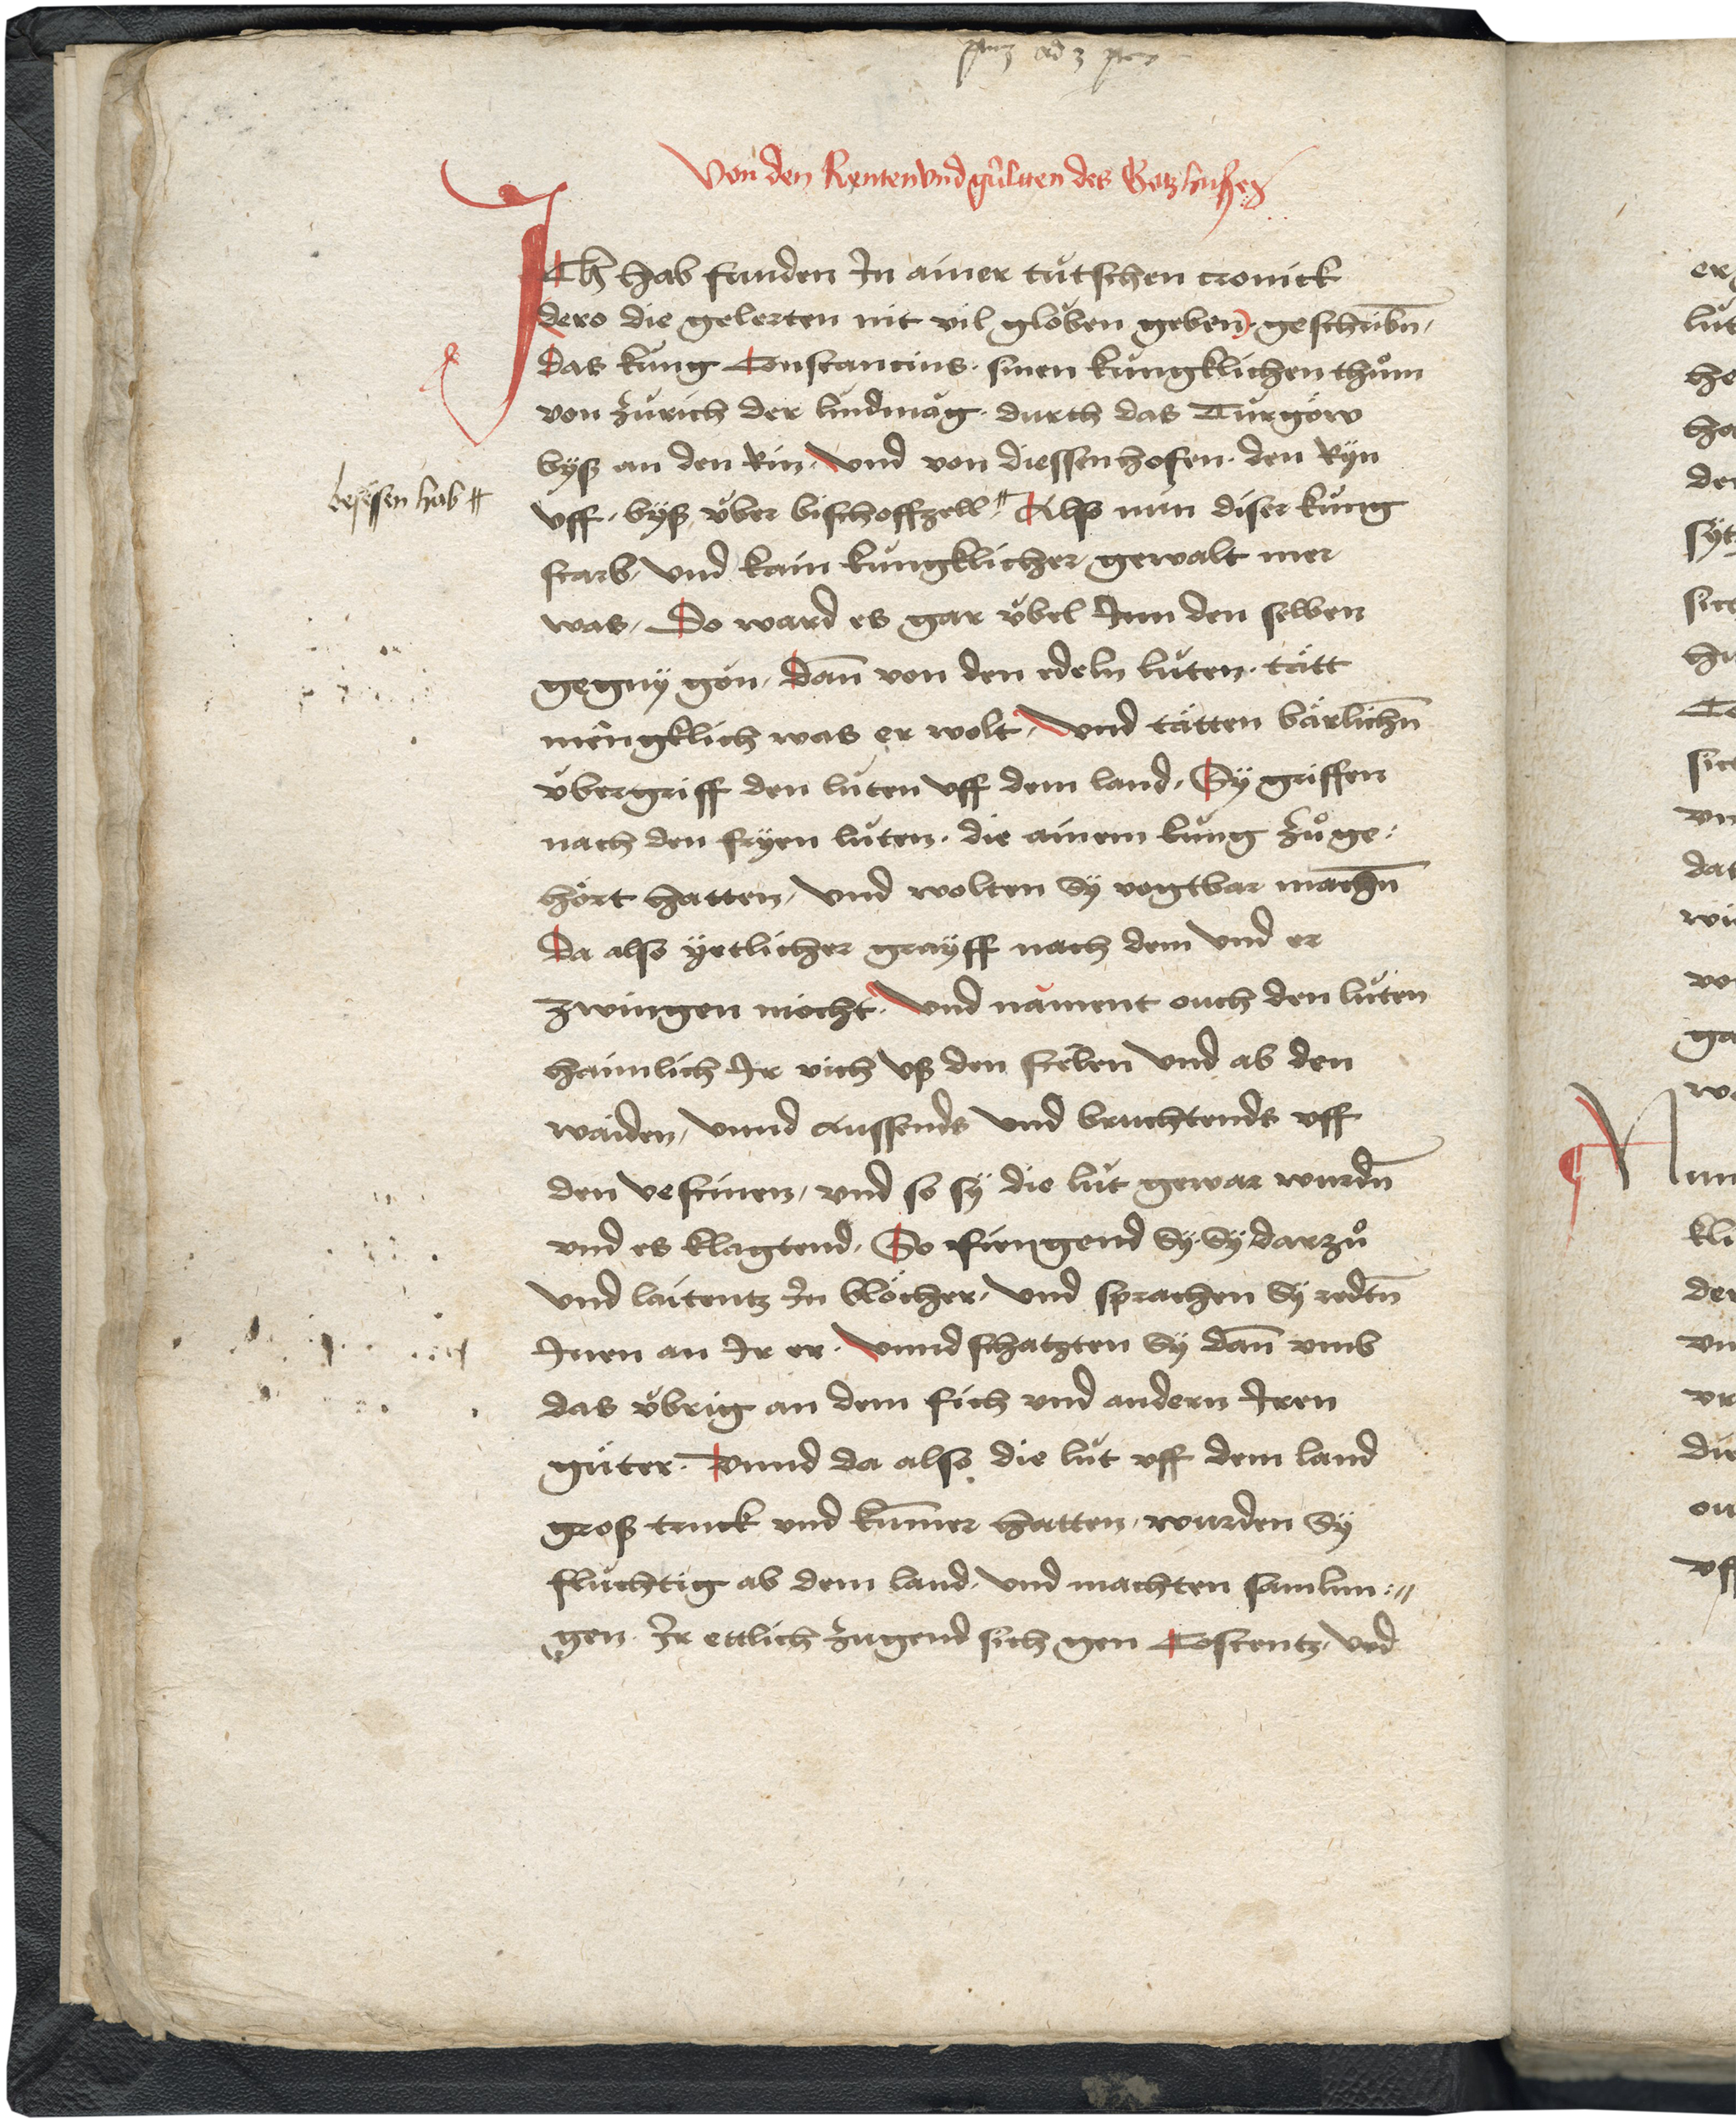 Von den Renten vnd gültten des Gotzhuses
ICh hab funden In ainer tütschen cronick
dero die gelerten nit vil globen geben) geschribn̄
das küng Constancius sinen küngklichen thům
von Zürich der lindmag durch das Turgöw
byß an den Rin / Vnd von diessenhofen den Ryn
besessen hab #
vff / byß über bischoffzell # Alß nun diser küng
starb / vnd kain küngklicher gewalt mer
was / Do ward es gar übel Inn den selben
gegny gon / dan̄ von den edeln lüten tätt
mengklich was er wolt / vnd tätten bärlichn̄
übergriff den lüten vff dem land / Sy griffen
nach den fryen lüten die ainem küng zů ge:
hört hatten / vnd wolten Sy vogtbar machn̄
Da also yetlicher grayff nach dem vnd er
zwingen mocht / Vnd nament ouch den lüten
haimlich Ir vich vß den stelen vnd ab den
waiden / vnnd aussends vnd bruchtends vff
den vestinen / vnd so sy die lüt gewar wurdn̄
vnd es klagtend / So fiengend Sy Sy darzů
vnd laitentz In blöcher / vnd sprachen Sy redtn̄
Inen an Ir er / vnnd schatzten Sy dan̄ vmb
das übrig an dem fich vnd andern Iren
güter / Vnnd da also die lüt vff dem land
groß truck vnd kum̄er hatten / wurden Sy
flüchtig ab dem land / vnd machten samlun:
gen Ir ettlich zugend sich gen Costentz / vnd